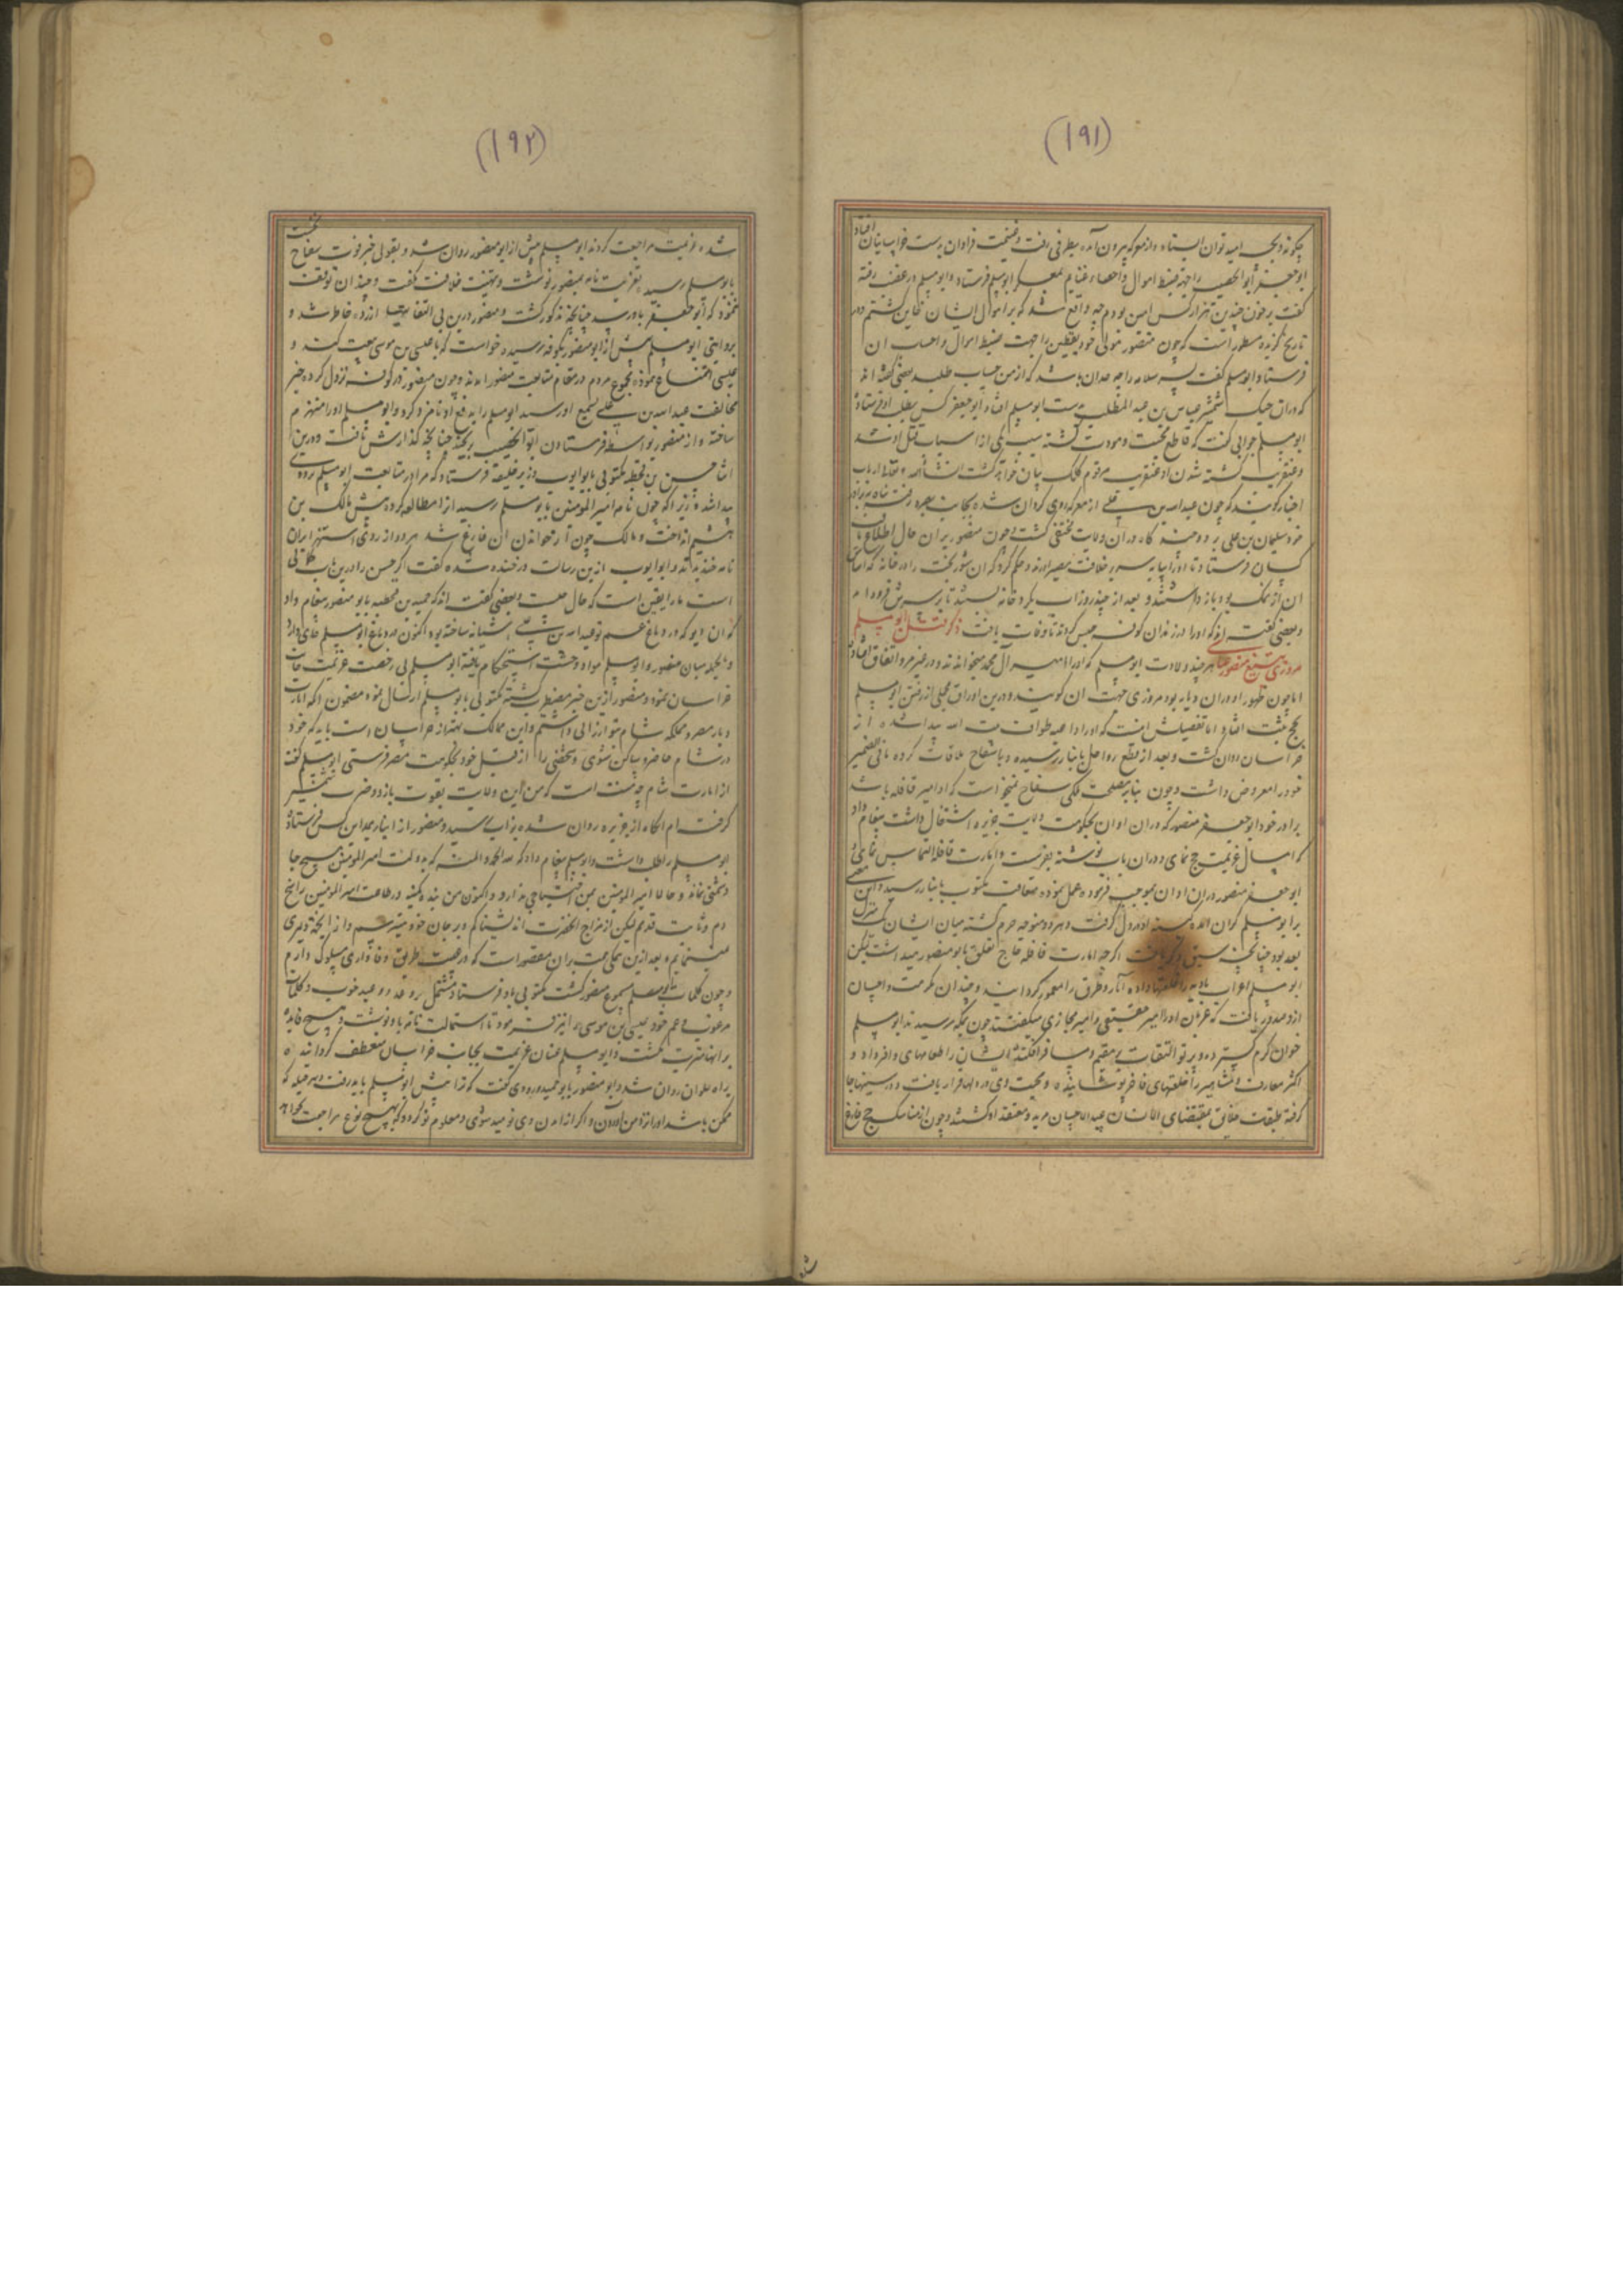 (۱۹۱)
ابو جعفر ابو الخصیب را جهة ضبط اموال و احصاء غنایم بمعسکر ابو مسلم فرستاد و ابو مسلم در غضب رفته
گفت بر خون چندین هزار کس امین بودم چه واقع شد که بر اموال ایشان خاین گشتم و در
تاریخ گزیده مسطور است که چون منصور مولی خود یقطین را جهت ضبط اموال و اجناس ان
فرستاد ابو مسلم گفت پسر سلامه را چه حد ان باشد که از من حساب طلبد بعضی گفته اند
که در ان جنک شمشیر عباس بن عبد المطلب بدست ابو مسلم افتاد و ابو جعفر کس بطلب او فرستاد
ابو مسلم جوابی گفت که قاطع محبت و مودت گشته سبب یکی از اسباب قتل او شد
و عنقریب کشته شدن او عنقریب مرقوم کلک بیان خواهد گشت انشاء الله و نقله ارباب
اخبار گویند که چون عبد الله بن علی از معرکه روی گردان شده بجانب بصره رفت پناه ببرادر
خود سلیمان بن علی برد و چند گاه در ان ولایت مختفی گشت و چون منصور بر ان حال اطلاع یافت
کسان فرستاد تا او را بپایه سریر خلافت مصیر اوردند و حکم کرد که ان شوربخت را در خانه که اساس
ان از نمک بود باز داشتند و بعد از چند روز اب بگرد خانه بستند تا بر سرش فرود امد
و بعضی گفته اند که او را در زندان کوفه حبس کردند تا وفات یافت ذکر قتل ابو مسلم
مروزی بتیغ منصور عباسی هر چند ولادت ابو مسلم که او را امیر آل محمد میخوانده اند در غیر مرو اتفاق افتاد
اما چون ظهور او در ان دیار بود مروزی جهت ان گویند و درین اوراق مجملی از رفتن ابو مسلم
بحج ثبت افتاد اما تفصیلش اینست که او را داعیه طواف بیت الله پیدا شده از
خراسان روان گشت و بعد از قطع مراحل بانبار رسیده و با سفاح ملاقات کرده ما فی الضمیر
خود را معروض داشت و چون بنابر مصلحت ملکی سفاح نمیخواست که او امیر قافله باشد
برادر خود ابو جعفر منصور که در ان اوان بحکومت ولایت جزیره اشتغال داشت پیغام داد
که امسال عزیمت حج نمای و در ان باب نوشته بفرست و امارت قافله التماس نمای و
ابو جعفر منصور در ان اوان بموجب فرموده عمل نموده متعاقب مکتوب بانبار رسید و این معنی
بر ابو مسلم گران امده کینه او در دل گرفت و هر دو متوجه حرم گشته میان ایشان یک منزل
بعد بود چنانچه سبق ذکر یافت اگر چه امارت قافله حاج تعلق بابو منصور میداشت لیکن
ابو مسلم اعراب بادیه را خلعتها داده آبار و طرق را معمور گردانید و چندان مکرمت و احسان
ازو صدور یافت که عربان او را امیر حقیقی و امیر مجازی میگفتند چون بمکه رسیدند ابو مسلم
خوان کرم گسترده و پرتو التفات بر مقیم و مسافر افکنده ایشان را طعامهای وافر داد و
اکثر معارف و مشاهیر را خلعتهای فاخر پوشانیده و محبت وی در دلها قرار یافت و در سینها جا
گرفته طبقات خلایق بمقتضای الانسان عبید الاحسان مرید و معتقد او گشتند و چون از مناسک حج فارغ
(۱۹۲)
شده عزیمت مراجعت کردند ابو مسلم پیش از ابو منصور روان شد و بقولی خبر فوت سفاح نخست
بابو مسلم رسیده تعزیت نامه بمنصور نوشت و تهنیت خلافت نگفت و چندان توقف
ننمود که ابو جعفر باو رسد چنانچه مذکور گشت و منصور درین بی التفاتیها ازرده خاطر شد و
بروایتی ابو مسلم پیش از ابو منصور بکوفه رسیده خواست که با عیسی بن موسی بیعت کند و
عیسی امتناع نموده مجموع مردم در مقام متابعت منصور امدند و چون منصور در کوفه نزول کرده خبر
مخالفت عبد الله بن علی بسمع او رسید ابو مسلم را بدفع او نامزد کرد و ابو مسلم او را منهزم
ساخته و از منصور بواسطه فرستادن ابو الخصیب برنجید چنانچه گذارش یافت و درین
اثنا حسن بن قحطبه مکتوبی بابو ایوب وزیر خلیفه فرستاد که مرا در متابعت ابو مسلم ترددی
پیدا شد زیرا که چون نامه امیر المؤمنین بابو مسلم رسید انرا مطالعه کرده پیش مالک بن
هیثم انداخت و مالک چون از خواندن ان فارغ شد هر دو از روی استهزا بر ان
نامه خندیدند و ابو ایوب ازین رسالت در خنده شده گفت اگر حسن را درین باب شکی
است ما را یقین است که حال چیست و بعضی گفته اند که حمید بن قحطبه بابو منصور پیغام داد
که ان دیو که در دماغ عم تو عبد الله بن علی اشیانه ساخته بود اکنون در دماغ ابو مسلم جای دارد
و بالجمله میان منصور و ابو مسلم مواد وحشت استحکام یافته ابو مسلم بی رخصت عزیمت جانب
خراسان نمود و منصور ازین خبر مضطرب گشته مکتوبی بابو مسلم ارسال نمود مضمون انکه امارت
دیار مصر و مملکه شام بتو ارزانی داشتم و این ممالک بهتر از خراسان است باید که خود
در شام حاضر و ساکن شوی و شخصی را از قبل خود بحکومت مصر فرستی ابو مسلم گفت
از امارت شام چه منت است که من این ولایت بقوت بازو و ضرب شمشیر
گرفته ام انگاه از جزیره روان شده بزاب رسید و منصور از انبار بمداین کس فرستاد
ابو مسلم را طلب داشت و ابو مسلم پیغام داد که لله الحمد و المنه که بدولت امیر المؤمنین هیچ جا
دشمنی نماند و حالا امیر المؤمنین بمن احتیاجی ندارد و اکنون من بنده کمینه در طاعت امیر المؤمنین راسخ
دم و ثابت قدم لیکن از مزاج انحضرت اندیشناکم و بر جان خود میترسم و از
و چون کلمات ابو مسلم مسموع منصور گشت مکتوبی باو فرستاد مشتمل بر وعد و وعید خوب و کلمات
مرغوب و عم خود عیسی بن موسی را نیز فرمود تا استمالت نامه باو نوشت و هیچ فایده
بر انها مترتب نگشت و ابو مسلم عنان عزیمت بجانب خراسان منعطف گردانید
براه حلوان روان شد و ابو منصور بابو حمید مروروذی گفت که ترا پیش ابو مسلم باید رفت و بهر حیله که
ممکن باشد او را نزد من اورد و اگر از امدن وی نومید شوی و معلوم تو گردد که بهیچ نوع مراجعت نخواهد